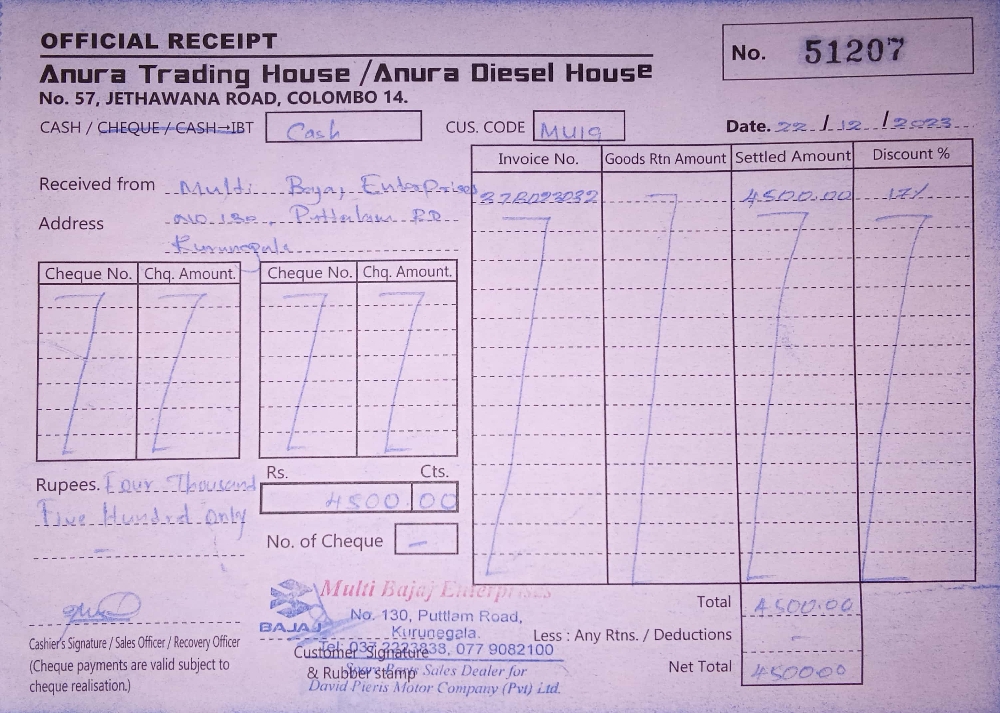 OFFICIAL RECEIPT
No. 51207
Anura Trading House /Anura Diesel House
No. 57, JETHAWANA ROAD, COLOMBO 14.
CASH / CHEQUE / CASH→IBT Cash CUS. CODE MU19 Date. 22 / 12 / 2023
Invoice No. Goods Rtn Amount Settled Amount Discount %
Received from Multi Bajaj Enterprises
4500.00 17%
Address No 130, Puttalam RD
Kurunegala
Cheque No. Chq. Amount. Cheque No. Chq. Amount.
Rupees. Four Thousand
Five Hundred only
Rs. Cts.
4500 00
No. of Cheque -
Cashier's Signature / Sales Officer / Recovery Officer
(Cheque payments are valid subject to
cheque realisation.)
BAJAJ
Multi Bajaj Enterprises
No. 130, Puttlam Road,
Kurunegala.
Tel: 037 2223838, 077 9082100
Customer Signature
& Rubber stamp
Spare Parts Sales Dealer for
David Pieris Motor Company (Pvt) Ltd.
Total 4500.00
Less : Any Rtns. / Deductions -
Net Total 4500.00